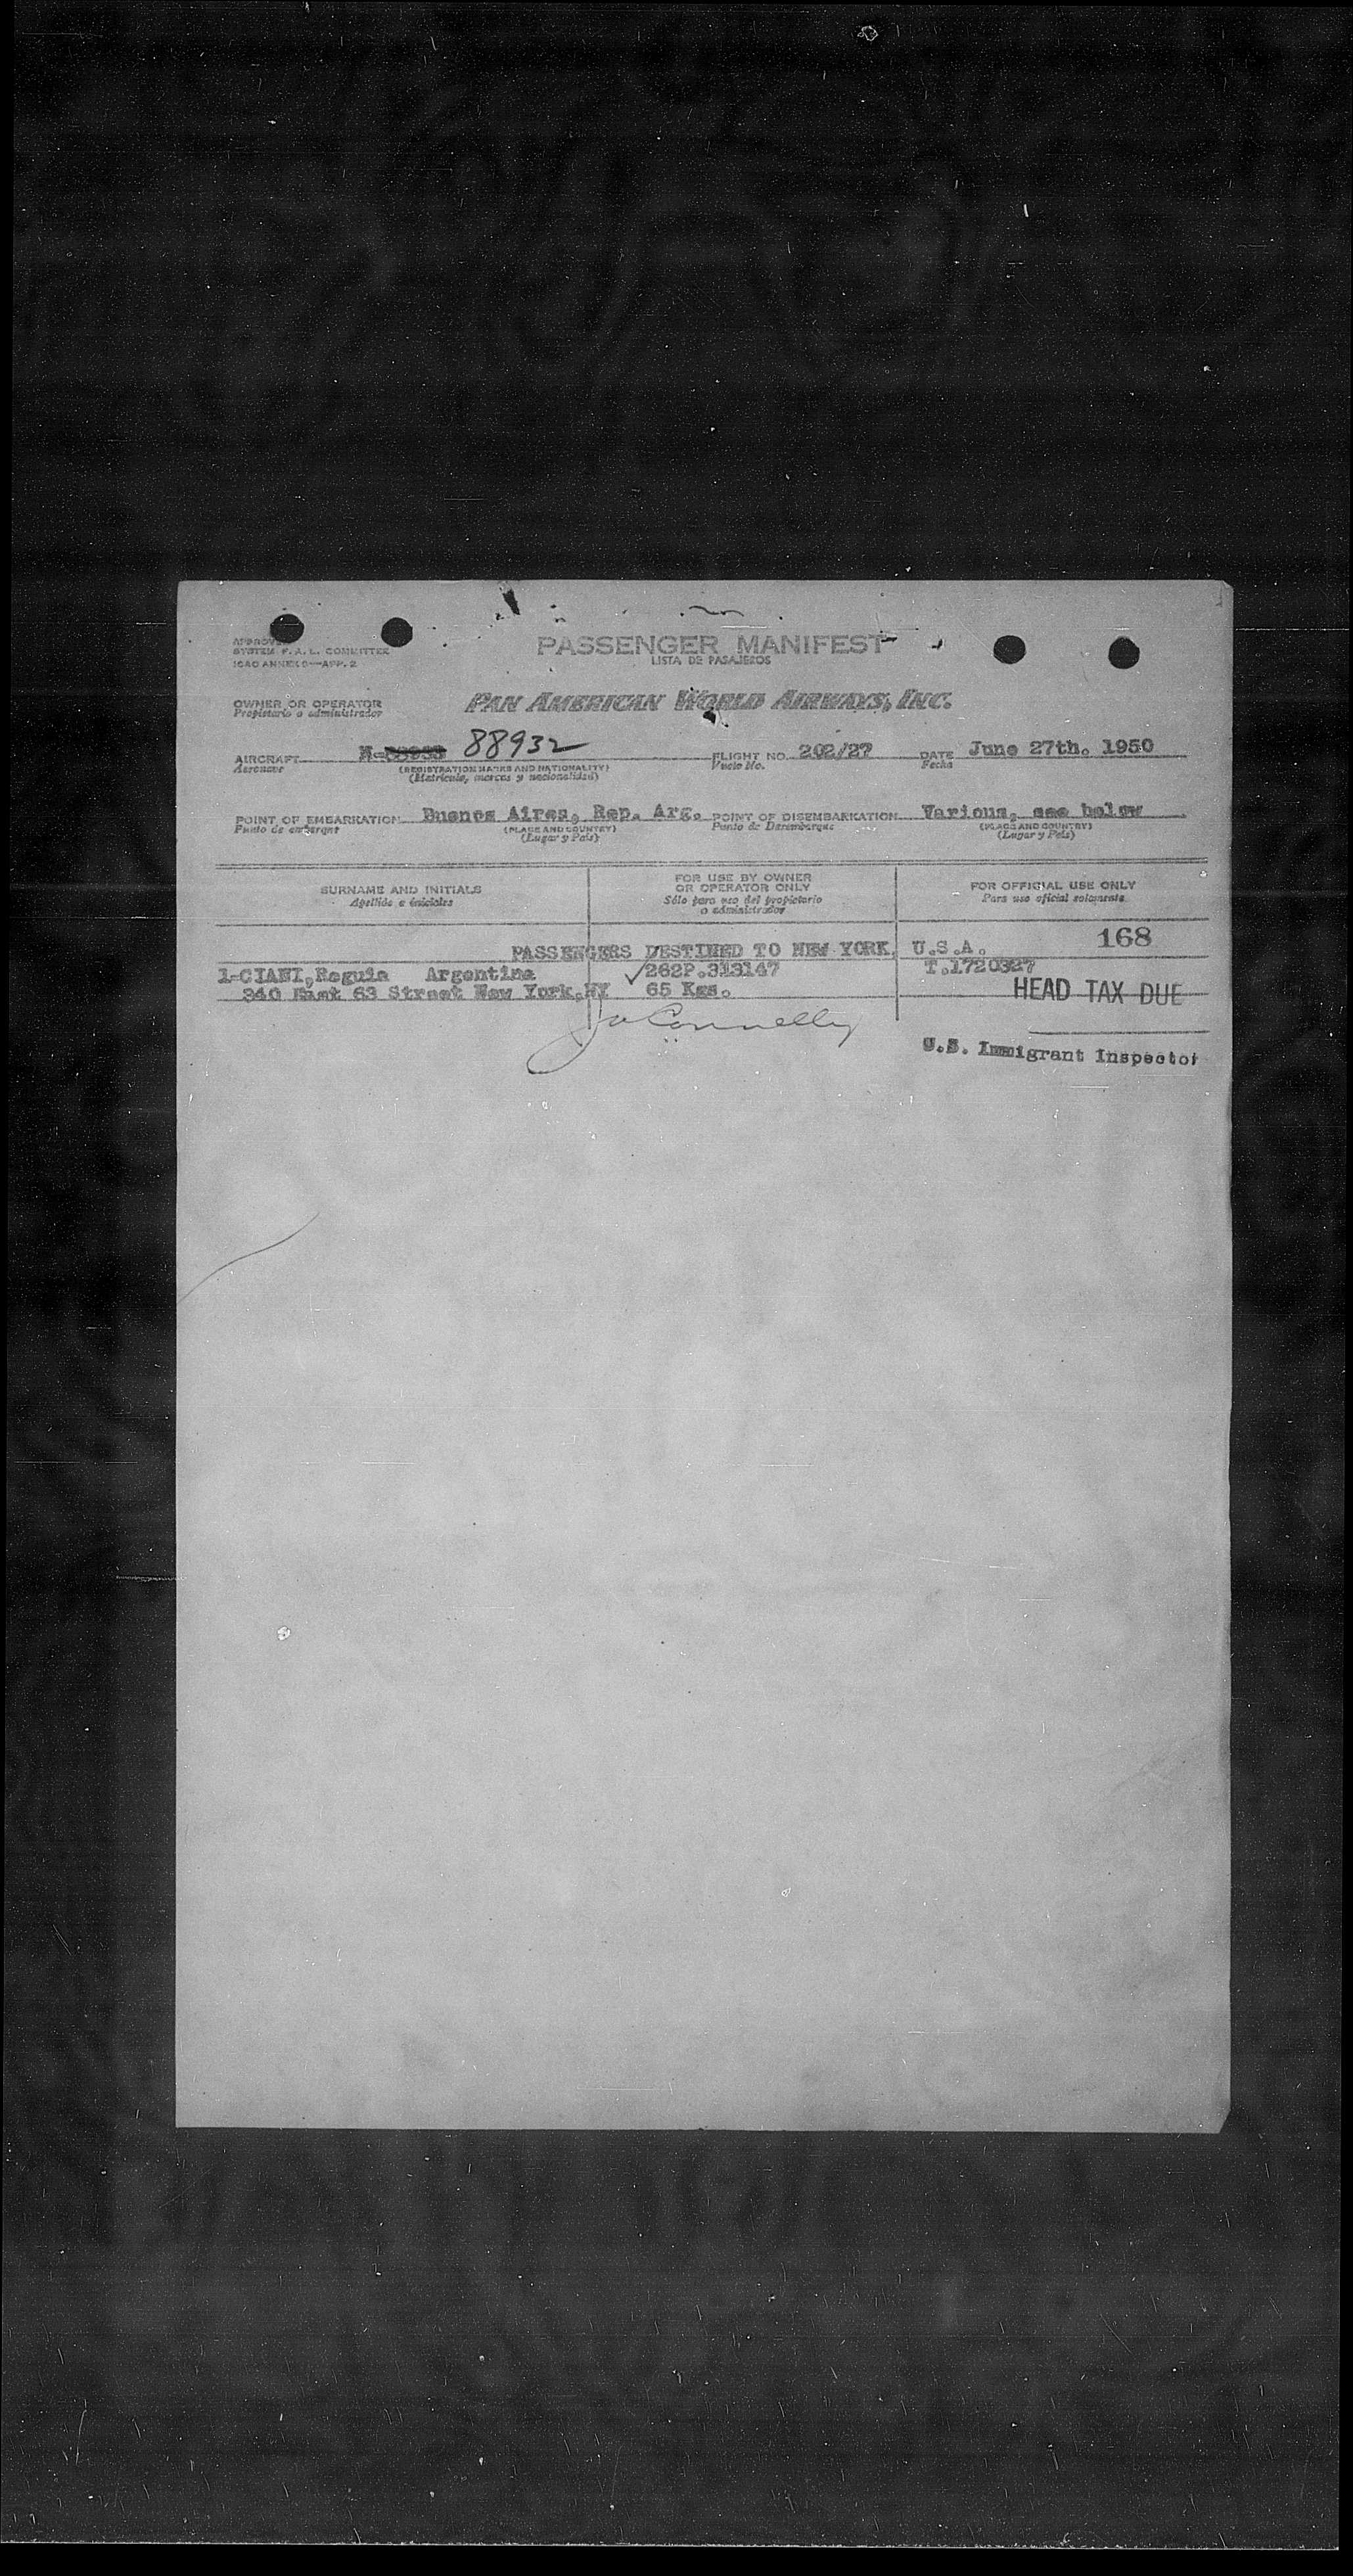 APPROVED
SYSTEM F. A. L. COMMITTEE
ICAO ANNEX 9—APP. 2
PASSENGER MANIFEST
LISTA DE PASAJEROS
OWNER OR OPERATOR
Propietario o administrador
PAN AMERICAN WORLD AIRWAYS, INC.
AIRCRAFT N- 88932 FLIGHT NO. 202/27 DATE June 27th. 1950
Aeronave (REGISTRATION MARKS AND NATIONALITY) Vuelo No. Fecha
(Matrícula, marcas y nacionalidad)
POINT OF EMBARKATION Buenos Aires, Rep. Arg. POINT OF DISEMBARKATION Various, see below
Punto de embarque (PLACE AND COUNTRY) Punto de Desembarque (PLACE AND COUNTRY)
(Lugar y País) (Lugar y País)
SURNAME AND INITIALS
Apellido e iniciales
FOR USE BY OWNER
OR OPERATOR ONLY
Sólo para uso del propietario
o administrador
FOR OFFICIAL USE ONLY
Para uso oficial solamente
168
PASSENGERS DESTINED TO NEW YORK, U.S.A.
1-CIANI, Reguia Argentina 262P.313147 T.1720327
340 East 63 Street New York, NY 65 Kgs. HEAD TAX DUE
Connelly
U.S. Immigrant Inspector